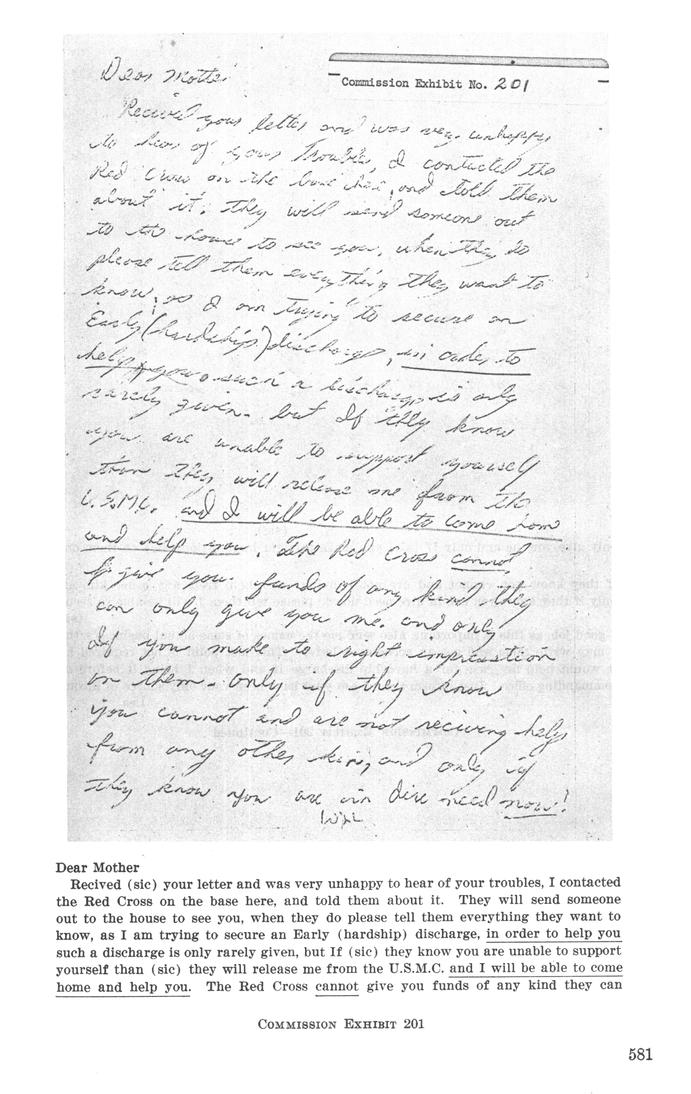 Dear Mother
Commission Exhibit No. 201
Recived your letter and was very unhappy
to hear of your troubles, I contacted the
Red Cross on the base here, and told them
about it. They will send someone out
to the house to see you, when they do
please tell them everything they want to
know, as I am trying to secure an
Early (hardship) discharge, in order to
help you such a discharge is only
rarely given. but If they know
you are unable to support yourself
than they will release me from the
U.S.M.C. and I will be able to come home
and help you. The Red Cross cannot
give you funds of any kind they
can only give you me. and only
If you make to right impression
on them. only if they know
you cannot and are not reciving help
from any other kin, and only if
they know you are in dire need now!
Dear Mother
Recived (sic) your letter and was very unhappy to hear of your troubles, I contacted
the Red Cross on the base here, and told them about it. They will send someone
out to the house to see you, when they do please tell them everything they want to
know, as I am trying to secure an Early (hardship) discharge, in order to help you
such a discharge is only rarely given, but If (sic) they know you are unable to support
yourself than (sic) they will release me from the U.S.M.C. and I will be able to come
home and help you. The Red Cross cannot give you funds of any kind they can
COMMISSION EXHIBIT 201
581